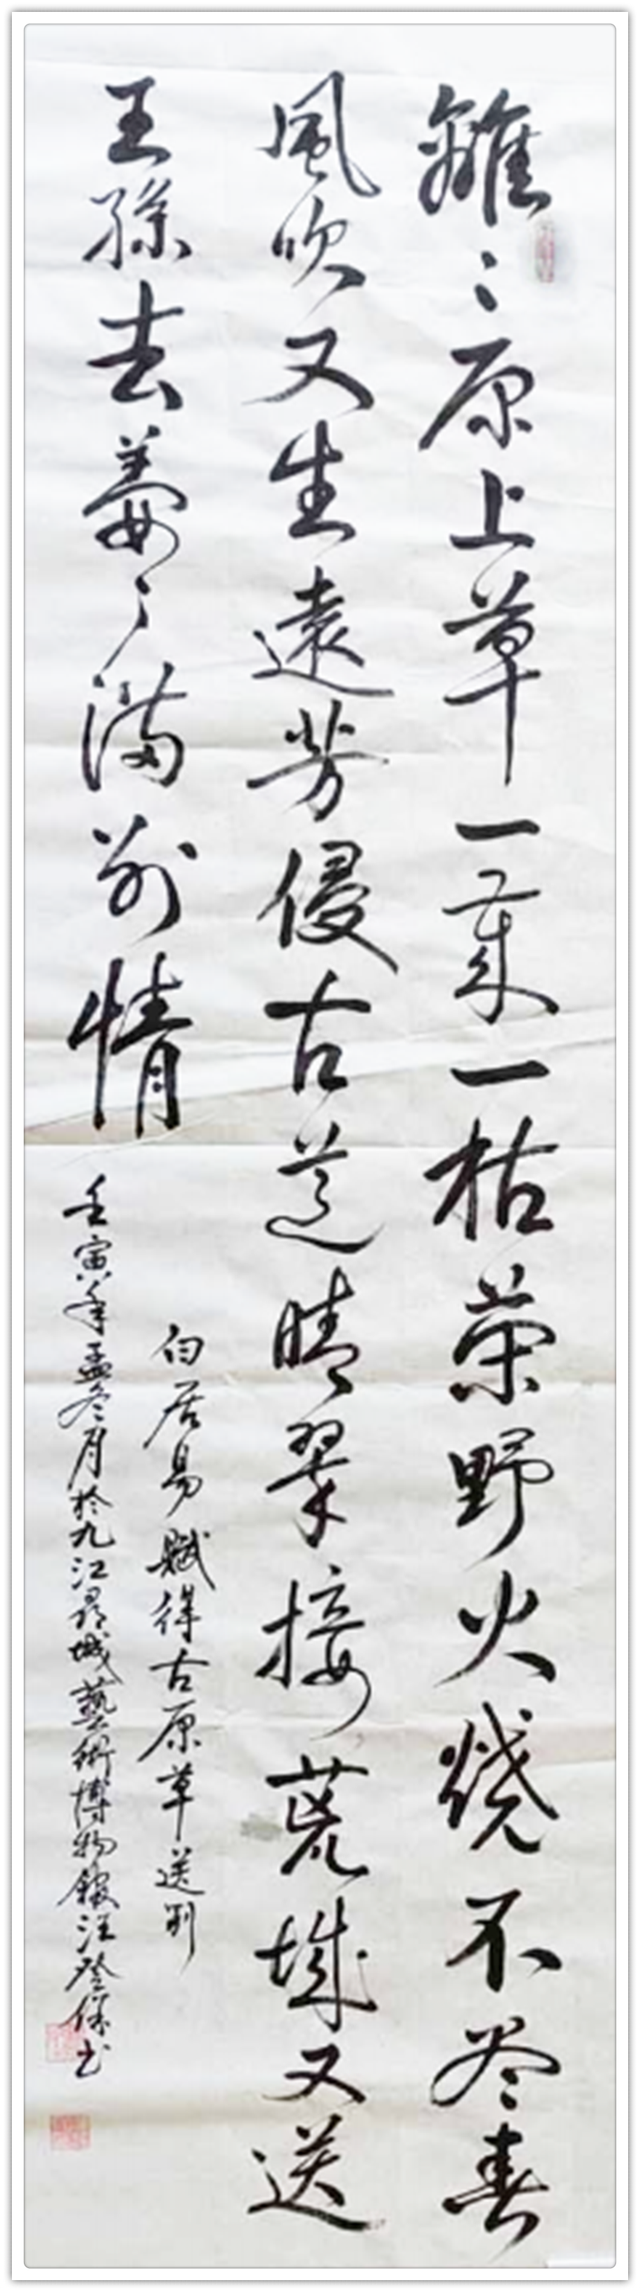 離〻原上草一岁一枯荣野火烧不尽春
風吹又生遠芳侵古道晴翠接荒城又送
王孫去萋〻满别情
白居易赋得古原草送别
壬寅年孟冬月於九江寻城藝術博物館汪登保书